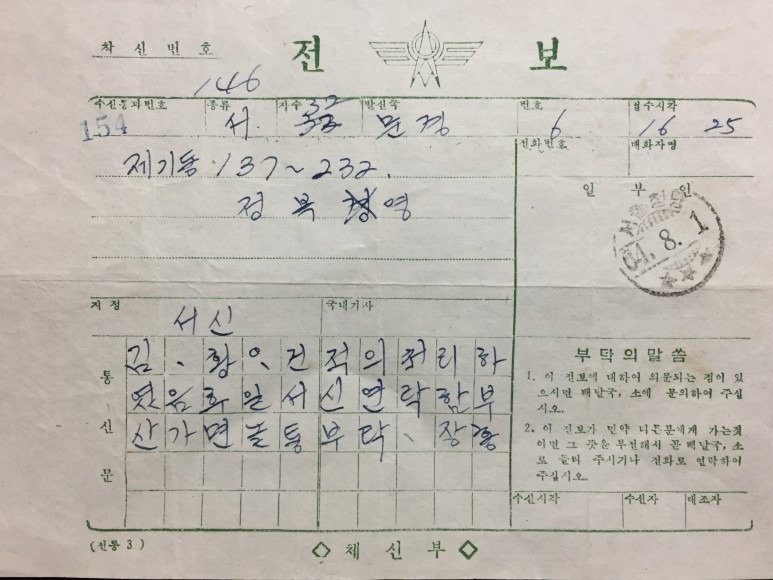 착신번호
전 보
146
수신통과번호 종류 자수 발신국 번호 접수시각
154 서. 32 문경 6 16 25
전화번호 대화자명
제기동 137~232.
정복 영
일 부 인
64.8.1
지정 국내기사
서신
통신문
김、황、건적의처리하
였음화일서신연락함부
산가면늘통부탁、장
부탁의말씀
1. 이 전보에 대하여 의문되는 점이 있
으시면 배달국, 소에 문의하여 주십
시오.
2. 이 전보가 만약 다른분에게 가는것
이면 그 뜻을 부전해서 곧 배달국, 소
로 돌려 주시거나 전화로 연락하여
주십시오.
수신시각 수신자 대조자
(전통3)
◇ 체 신 부 ◇